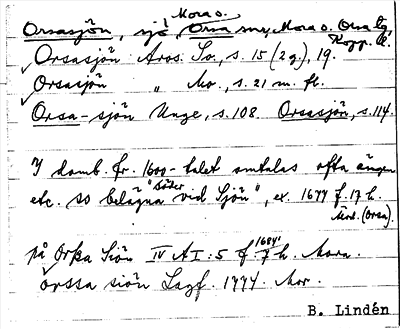 Mora o.
Orsasjön, sjö, Orsa sn, Mora o. Orsa tg,
Kopp. l.
Orsasjön Aros. Sv., s. 15 (2 g.), 19.
Orsasjön " Mo., s. 21 m. fl.
Orsa-sjön Unge, s. 108. Orsasjön, s. 114.
I domb. fr. 1600-talet omtalas ofta ängar
etc. ss belägna "söder vid Sjön", ex. 1677 f. 17 h.
Mora. (Orsa).
på Orsa Siön IV A I: 5 f. 7 h. 1684 Mora.
Orssa siön Lagf. 1774. Mor.
B. Lindén